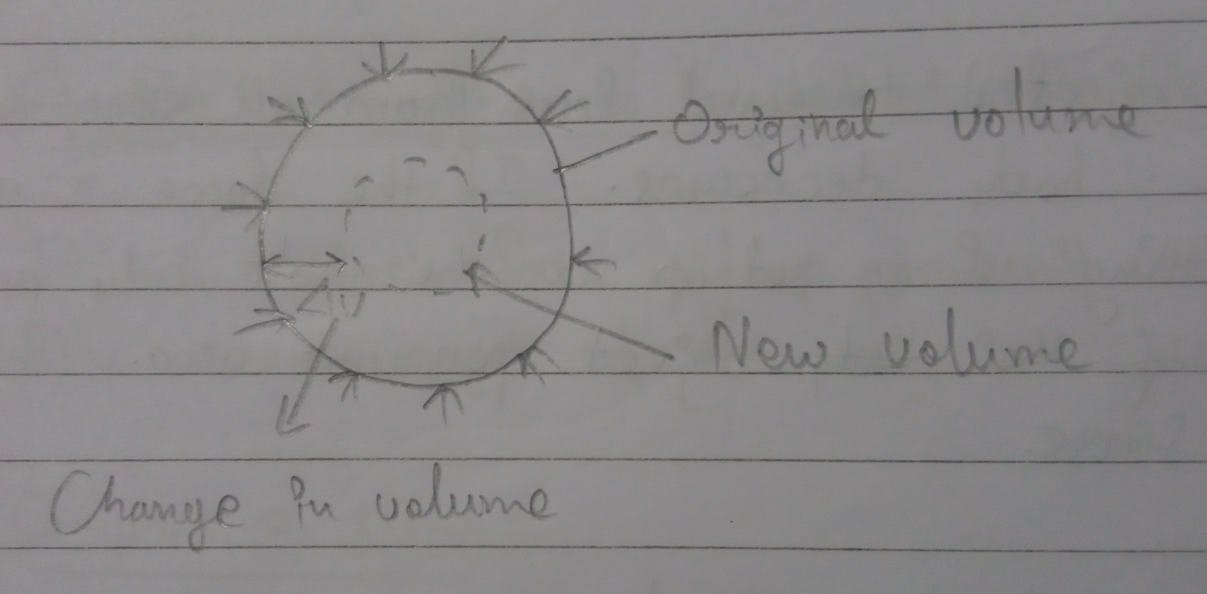 Original volume
Δv
New volume
Change in volume